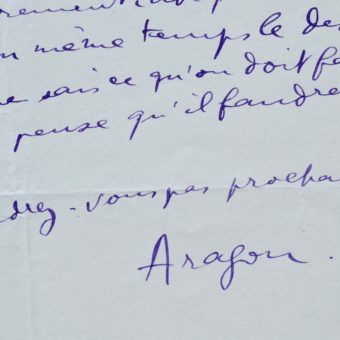 en même temps le des
ne sais ce qu'on doit fa
pense qu'il faudra
drez-vous pas procha
Aragon.